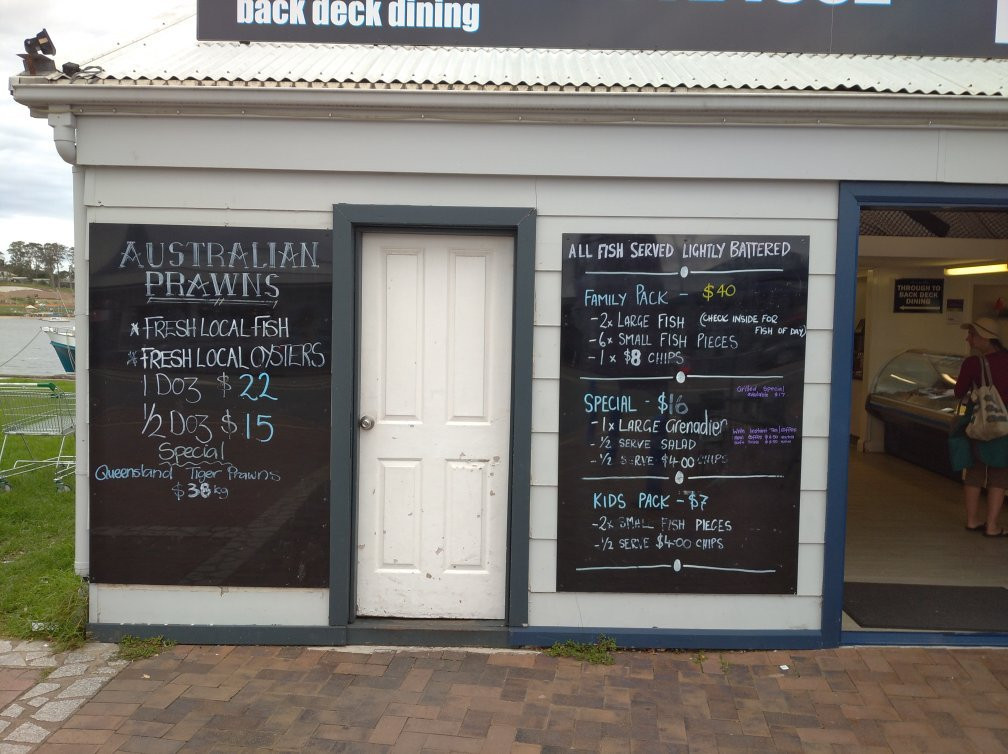 back deck dining
AUSTRALIAN
PRAWNS
* FRESH LOCAL FISH
* FRESH LOCAL OYSTERS
1 DOZ $22
1/2 DOZ $15
Special
Queensland Tiger Prawns
$38kg
ALL FISH SERVED LIGHTLY BATTERED
FAMILY PACK - $40
-2x LARGE FISH (CHECK INSIDE FOR
FISH OF DAY)
-6x SMALL FISH PIECES
-1x $8 CHIPS
Grilled Special
available $17
SPECIAL - $16
-1x LARGE Grenadier
-1/2 SERVE SALAD
-1/2 SERVE $4.00 CHIPS
With Instant Tea/Coffee
KIDS PACK - $7
-2x SMALL FISH PIECES
-1/2 SERVE $4.00 CHIPS
THROUGH TO
BACK DECK
DINING